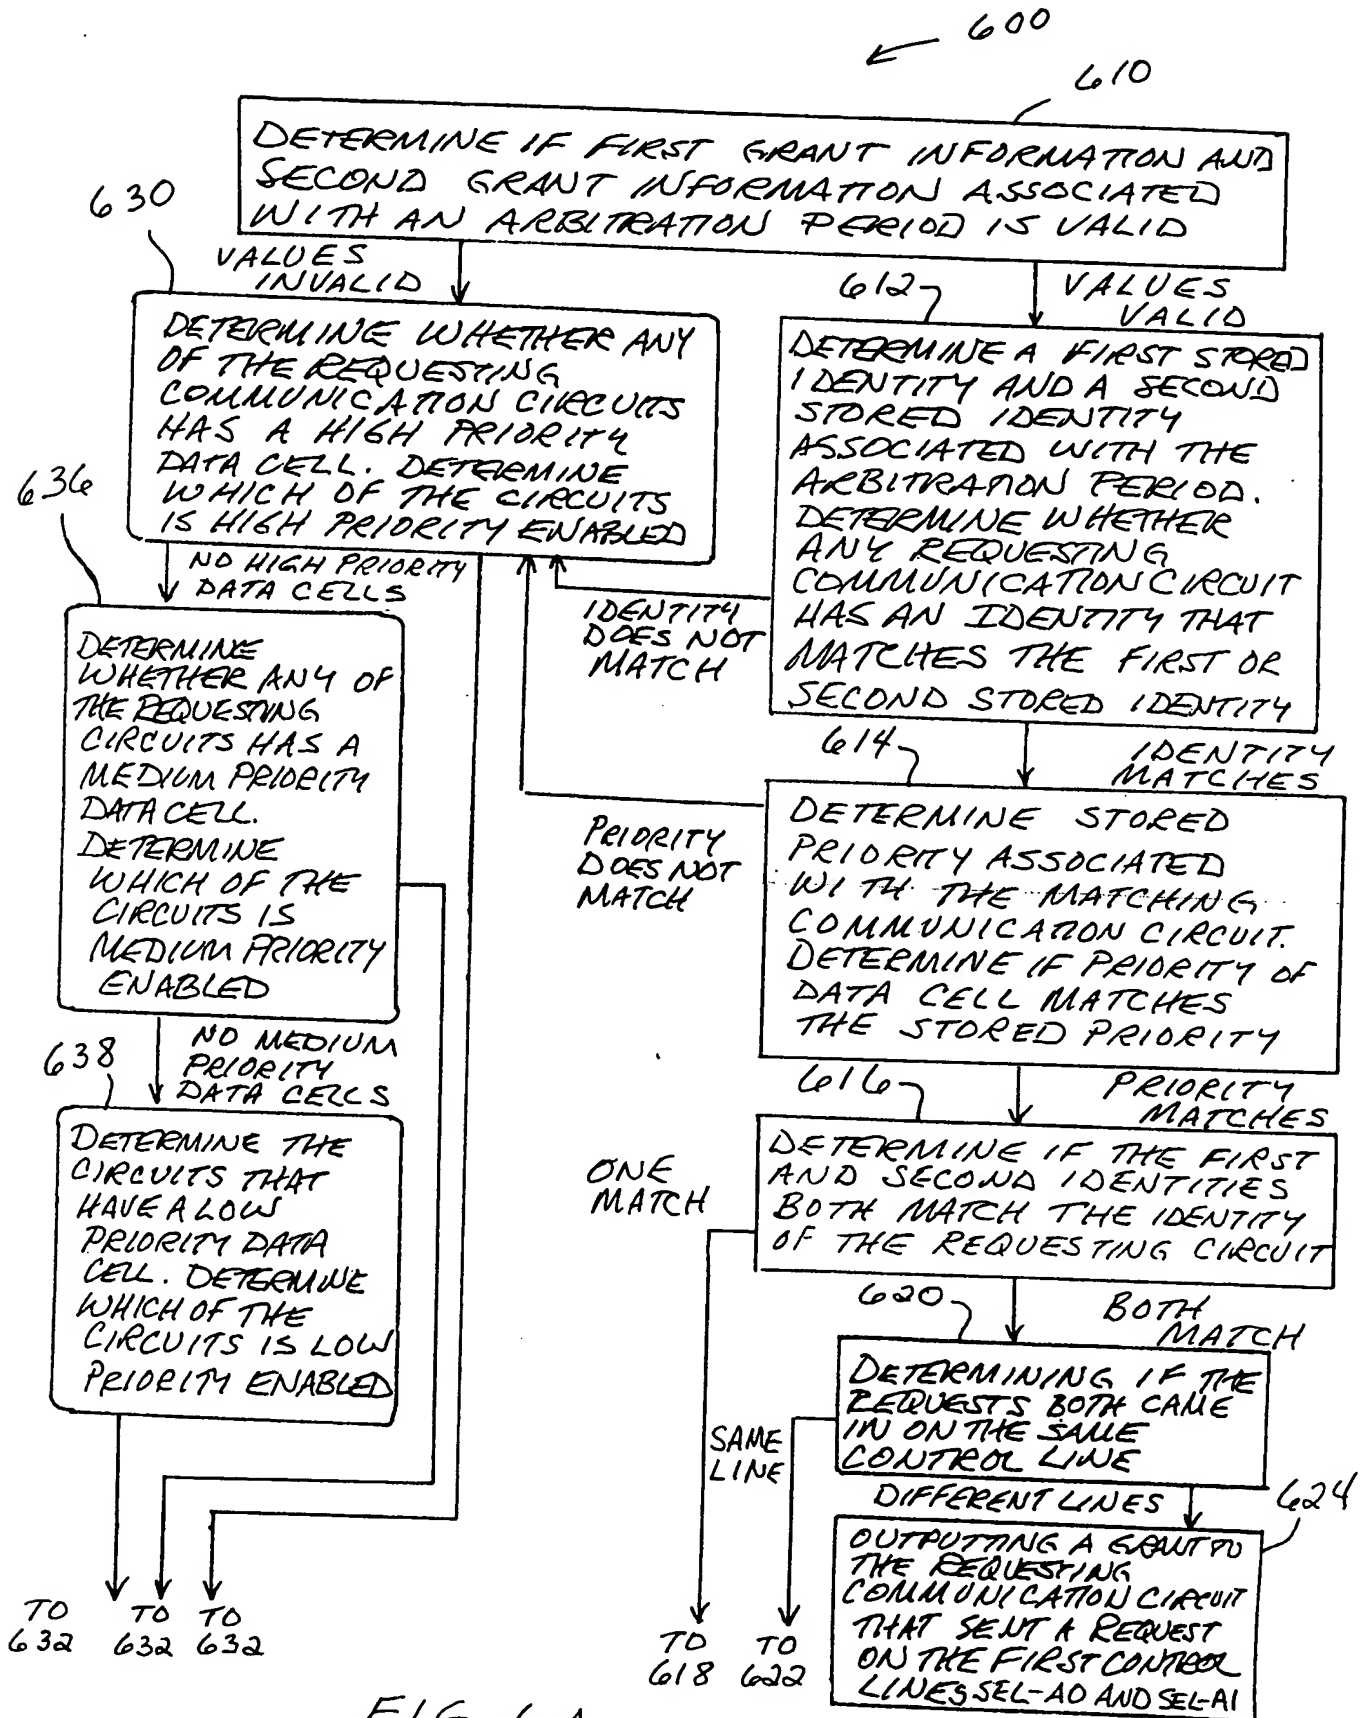 600
610
DETERMINE IF FIRST GRANT INFORMATION AND
SECOND GRANT INFORMATION ASSOCIATED
WITH AN ARBITRATION PERIOD IS VALID
630
VALUES
INVALID
612
VALUES
VALID
DETERMINE WHETHER ANY
OF THE REQUESTING
COMMUNICATION CIRCUITS
HAS A HIGH PRIORITY
DATA CELL. DETERMINE
WHICH OF THE CIRCUITS
IS HIGH PRIORITY ENABLED
DETERMINE A FIRST STORED
IDENTITY AND A SECOND
STORED IDENTITY
ASSOCIATED WITH THE
ARBITRATION PERIOD.
DETERMINE WHETHER
ANY REQUESTING
COMMUNICATION CIRCUIT
HAS AN IDENTITY THAT
MATCHES THE FIRST OR
SECOND STORED IDENTITY
636
NO HIGH PRIORITY
DATA CELLS
IDENTITY
DOES NOT
MATCH
DETERMINE
WHETHER ANY OF
THE REQUESTING
CIRCUITS HAS A
MEDIUM PRIORITY
DATA CELL.
DETERMINE
WHICH OF THE
CIRCUITS IS
MEDIUM PRIORITY
ENABLED
614
IDENTITY
MATCHES
PRIORITY
DOES NOT
MATCH
DETERMINE STORED
PRIORITY ASSOCIATED
WITH THE MATCHING
COMMUNICATION CIRCUIT.
DETERMINE IF PRIORITY OF
DATA CELL MATCHES
THE STORED PRIORITY
638
NO MEDIUM
PRIORITY
DATA CELLS
616
PRIORITY
MATCHES
DETERMINE THE
CIRCUITS THAT
HAVE A LOW
PRIORITY DATA
CELL. DETERMINE
WHICH OF THE
CIRCUITS IS LOW
PRIORITY ENABLED
ONE
MATCH
DETERMINE IF THE FIRST
AND SECOND IDENTITIES
BOTH MATCH THE IDENTITY
OF THE REQUESTING CIRCUIT
620
BOTH
MATCH
DETERMINING IF THE
REQUESTS BOTH CAME
IN ON THE SAME
CONTROL LINE
SAME
LINE
DIFFERENT LINES
624
OUTPUTTING A GRANT TO
THE REQUESTING
COMMUNICATION CIRCUIT
THAT SENT A REQUEST
ON THE FIRST CONTROL
LINES SEL-A0 AND SEL-A1
TO
632
TO
632
TO
632
TO
618
TO
622
FIG. 6A